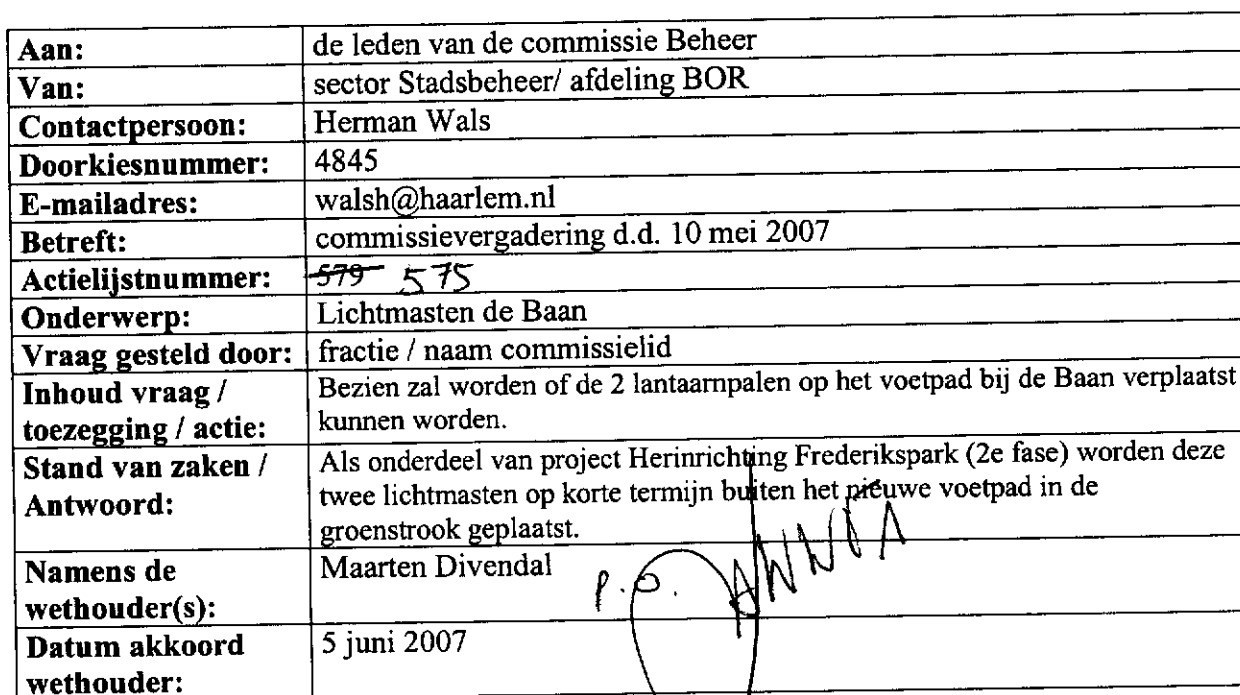 Aan: de leden van de commissie Beheer
Van: sector Stadsbeheer/ afdeling BOR
Contactpersoon: Herman Wals
Doorkiesnummer: 4845
E-mailadres: walsh@haarlem.nl
Betreft: commissievergadering d.d. 10 mei 2007
Actielijstnummer: 579 575
Onderwerp: Lichtmasten de Baan
Vraag gesteld door: fractie / naam commissielid
Inhoud vraag / Bezien zal worden of de 2 lantaarnpalen op het voetpad bij de Baan verplaatst
toezegging / actie: kunnen worden.
Stand van zaken / Als onderdeel van project Herinrichting Frederikspark (2e fase) worden deze
Antwoord: twee lichtmasten op korte termijn buiten het nieuwe voetpad in de
groenstrook geplaatst.
Namens de Maarten Divendal p.o.
wethouder(s):
Datum akkoord 5 juni 2007
wethouder: